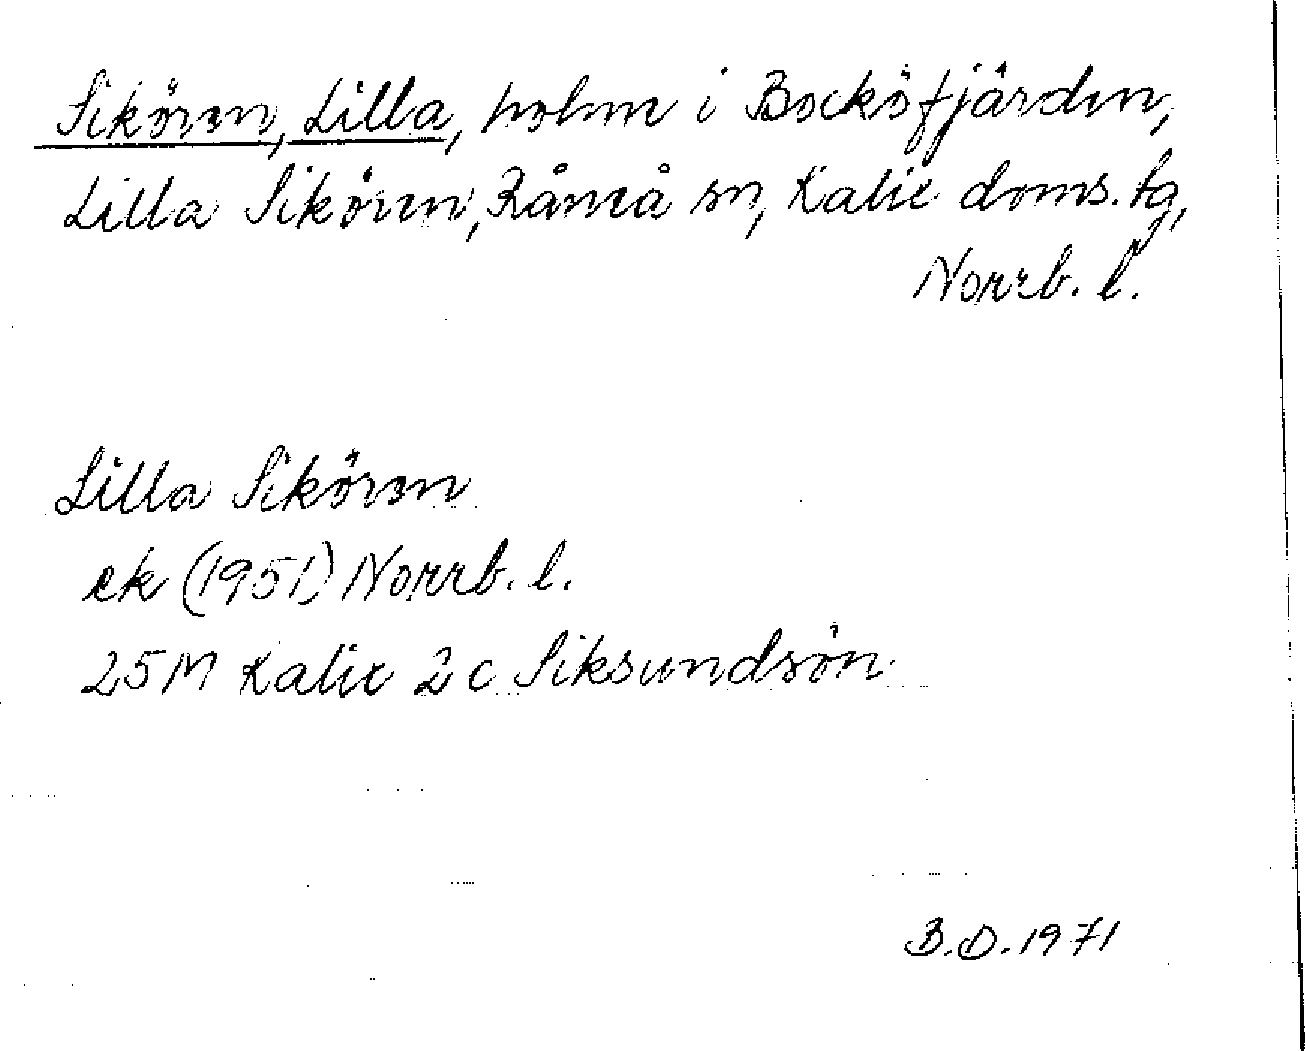 Siköven, Lilla, holm i Bocköfjärden,
Lilla Siköven, Råneå sn, Kalix doms. tg,
Norrb. l.
Lilla Siköven
ek (1951) Norrb. l.
25M Kalix 2c Siksundsön
B.D. 1971